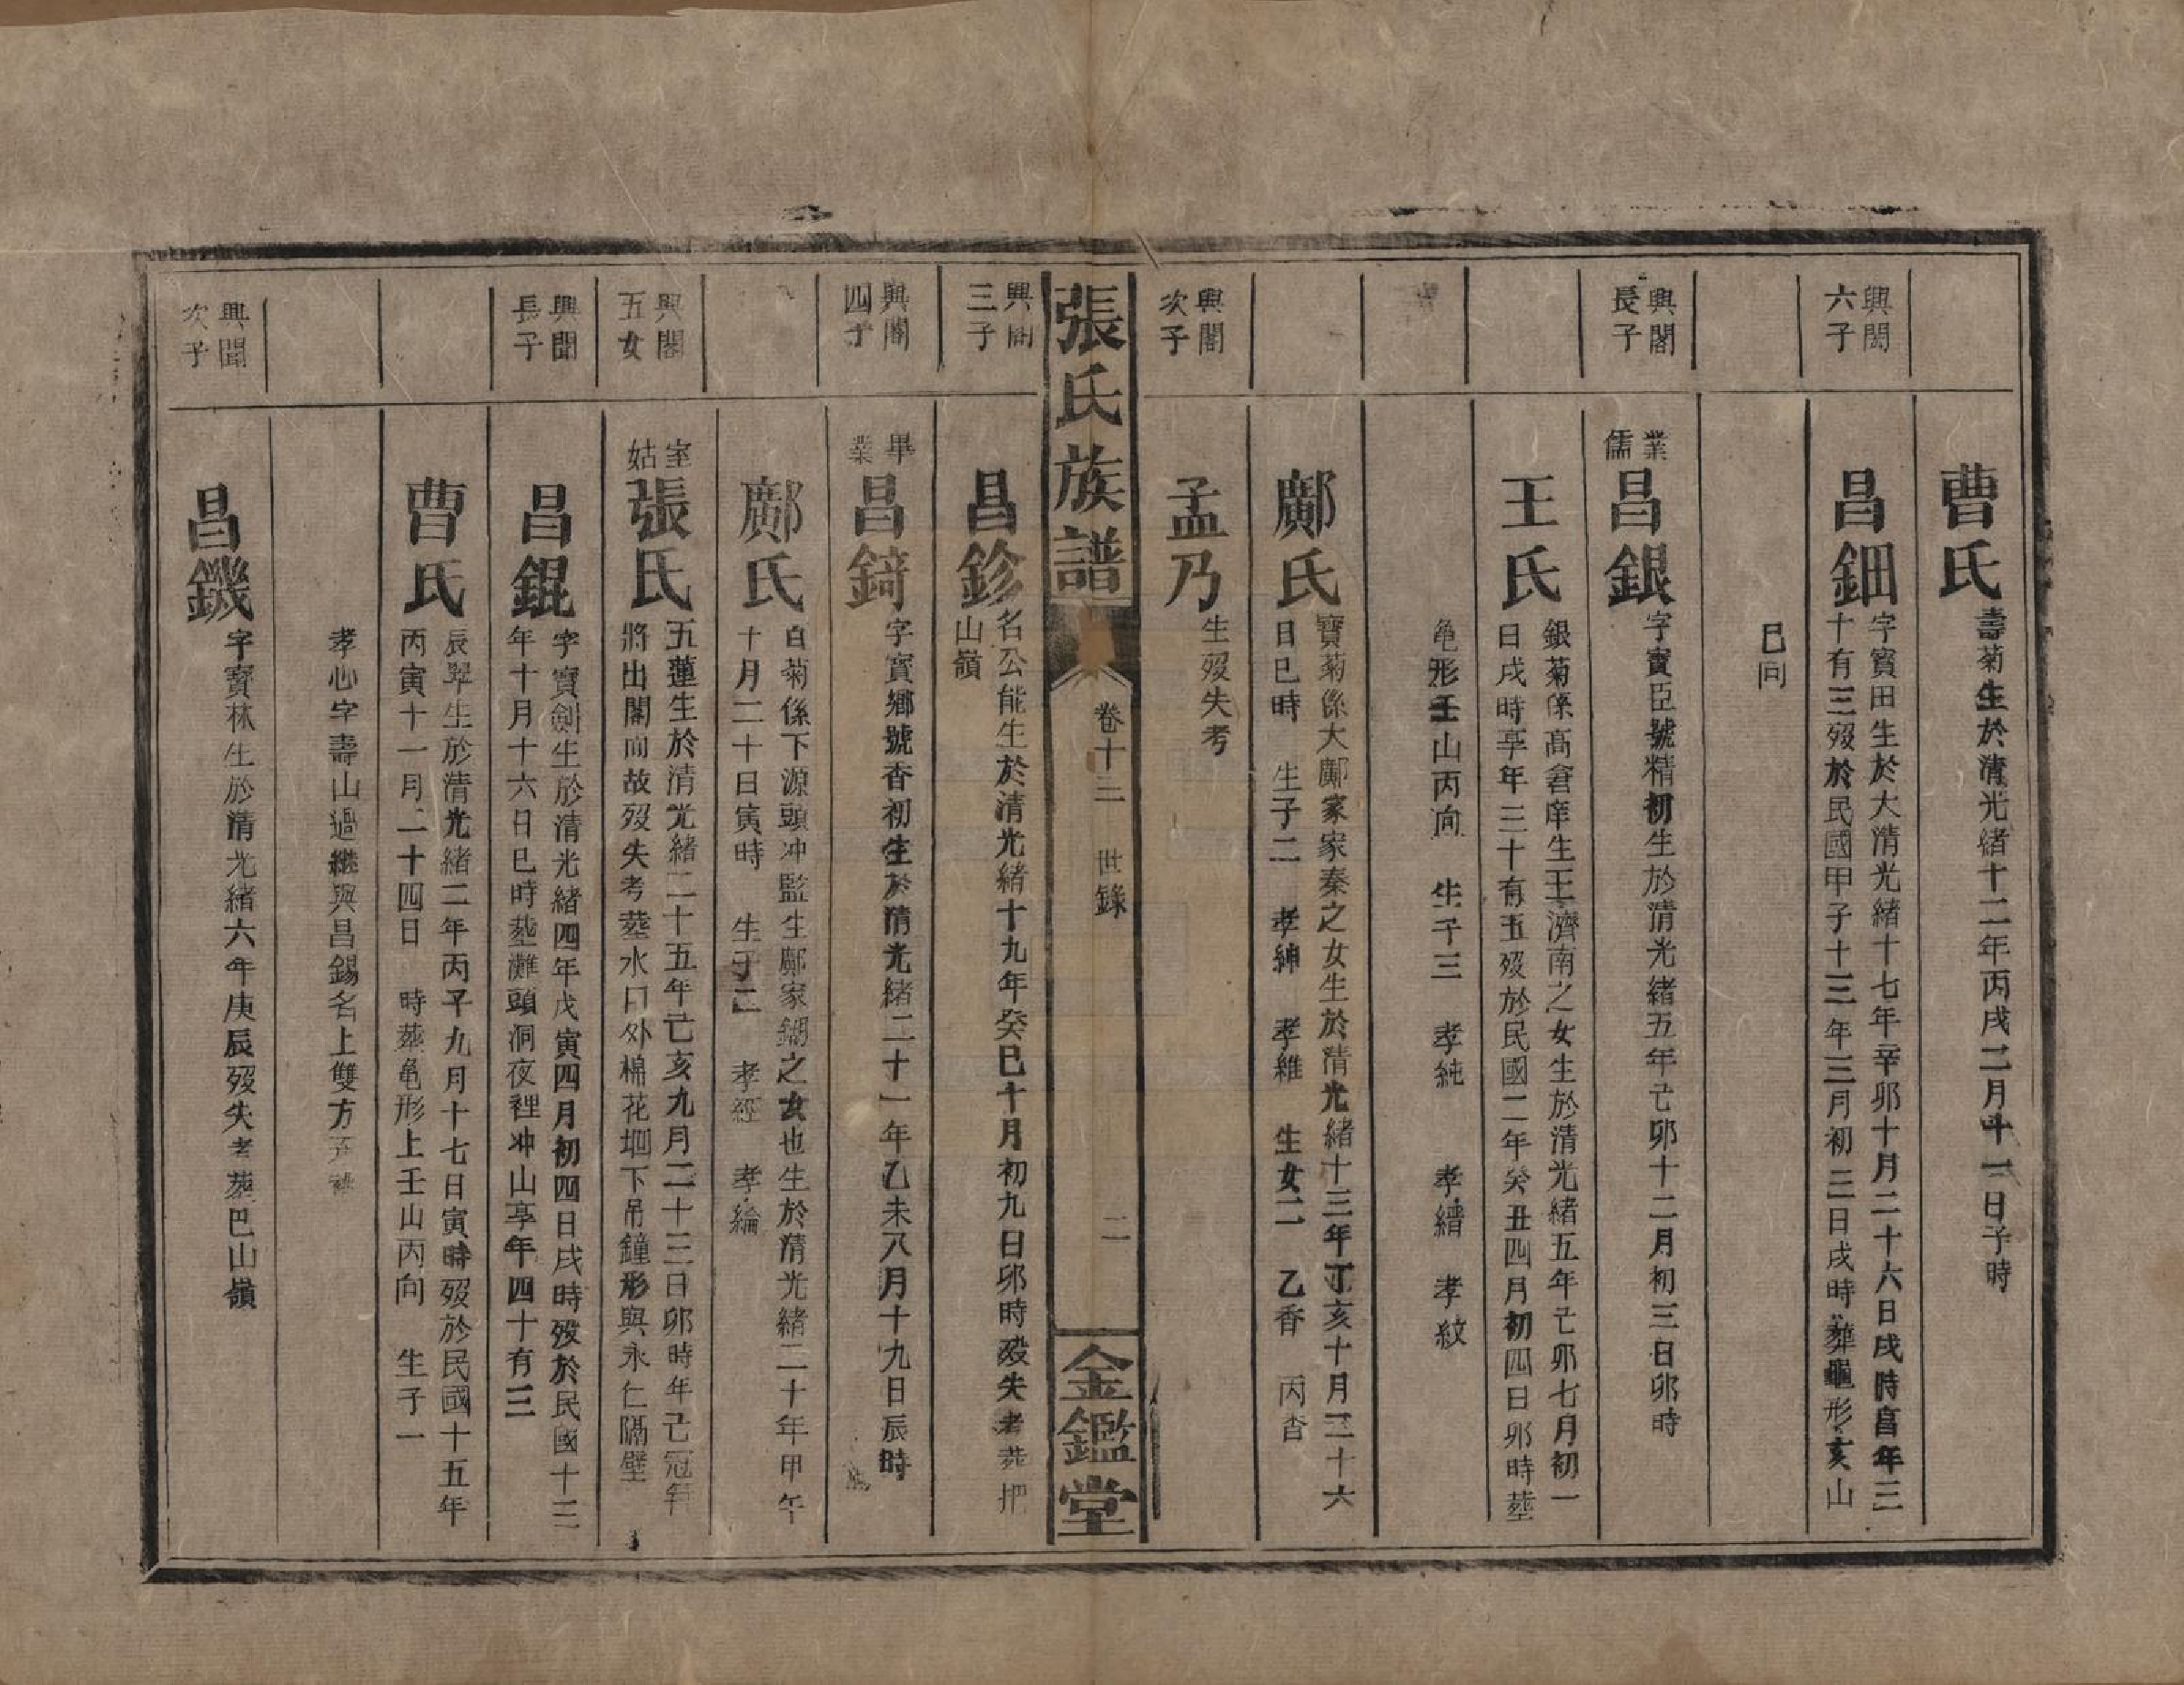 曹氏
壽菊生於清光緒十二年丙戌二月十一日子時
興閣
六子
昌鈿
字賓田生於大清光緒十七年辛卯十月二十六日戌時昌年三
十有三歿於民國甲子十三年三月初三日戌時葬龜形亥山
巳向
興閣
長子
業
儒
昌銀
字賓臣號精初生於清光緒五年己卯十二月初三日卯時
王氏
銀菊係高倉庠生王濟南之女生於清光緒五年己卯七月初一
日戌時享年三十有五歿於民國二年癸丑四月初四日卯時塟
龟形壬山丙向 生子三 孝純 孝繒 孝紋
鄺氏
寶菊係大鄺家家秦之女生於清光緒十三年丁亥十月三十六
日巳時 生子二 孝紳 孝維 生女二 乙香 丙杳
興閣
次子
孟乃
生歿失考
張氏族譜
卷十三 世錄
二
金鑑堂
興閣
三子
昌鉁
名公能生於清光緒十九年癸巳十月初九日卯時歿失考葬把
山嶺
興閣
四子
畢
業
昌錡
字賓鄉號香初生於清光緒二十一年乙未八月十九日辰時
鄺氏
白菊係下源頭冲監生鄺家鎙之女也生於清光緒二十年甲午
十月二十日寅時 生子二 孝經 孝綸
興閣
五女
室
姑
張氏
五蓮生於清光緒二十五年己亥九月二十三日卯時年已冠笄
將出閣而故歿失考塟水口外棉花垇下吊鐘形與永仁隔壁
興聞
長子
昌錕
字寶劍生於清光緒四年戊寅四月初四日戌時歿於民國十三
年十月十六日巳時塟灘頭洞夜裡冲山享年四十有三
曹氏
辰翠生於清光緒二年丙子九月十七日寅時歿於民國十五年
丙寅十一月二十四日 時葬龟形上壬山丙向 生子一
孝心字壽山過継與昌錫名上雙方
興聞
次子
昌鐖
字寶林生於清光緒六年庚辰歿失考葬巴山嶺